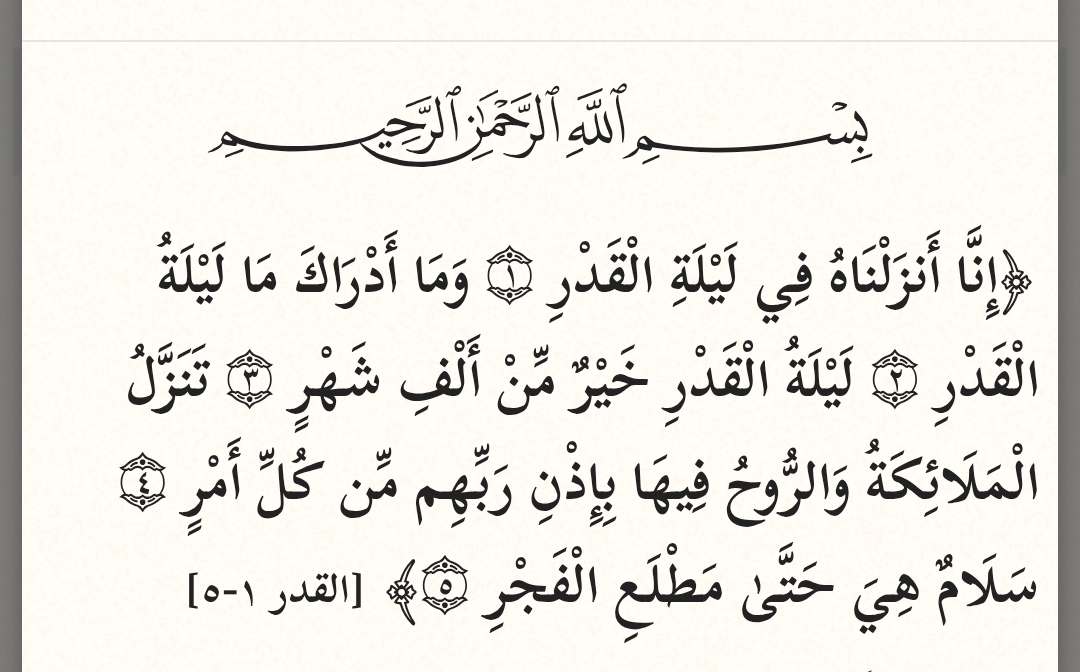 بِسْمِ ٱللَّهِ ٱلرَّحْمَٰنِ ٱلرَّحِيمِ
﴿إِنَّا أَنزَلْنَاهُ فِي لَيْلَةِ الْقَدْرِ ۝١ وَمَا أَدْرَاكَ مَا لَيْلَةُ
الْقَدْرِ ۝٢ لَيْلَةُ الْقَدْرِ خَيْرٌ مِّنْ أَلْفِ شَهْرٍ ۝٣ تَنَزَّلُ
الْمَلَائِكَةُ وَالرُّوحُ فِيهَا بِإِذْنِ رَبِّهِم مِّن كُلِّ أَمْرٍ ۝٤
سَلَامٌ هِيَ حَتَّىٰ مَطْلَعِ الْفَجْرِ ۝٥﴾ [القدر ١-٥]